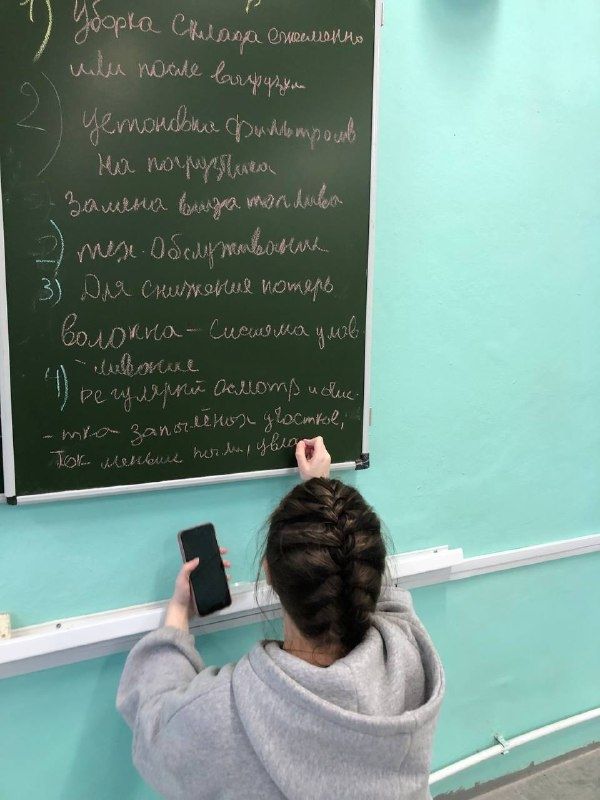 1) Уборка склада ежеменно
или после выгрузки
2) Установка фильтров
на погрузчика
Замена вида топлива
2) тех. обслуживание
3) Для снижение потерь
волокна – система улав-
ливание
4) регулярый осмотр и очис-
-тка запылёных участков,
так меньше пыли, увла